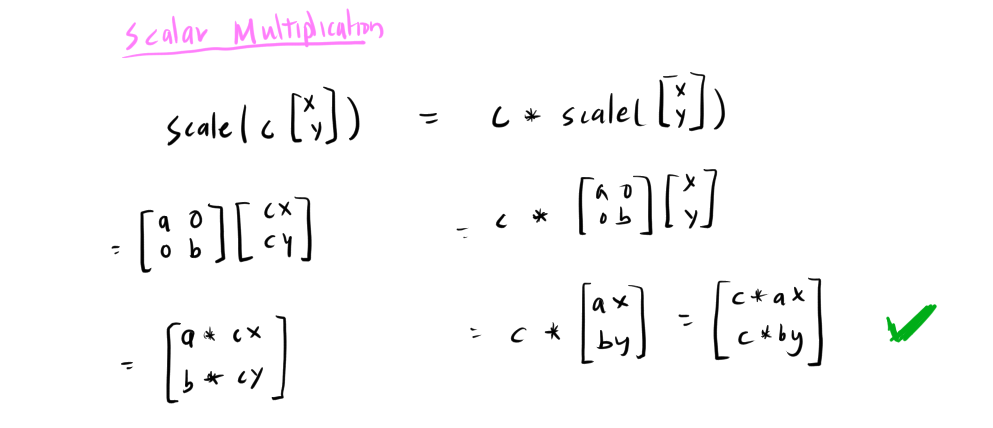 Scalar Multiplication
scale( c [x y] ) = c * scale( [x y] )
= [a 0 0 b] [cx cy] = c * [a 0 0 b] [x y]
= [a * cx b * cy] = c * [ax by] = [c * ax c * by] ✓